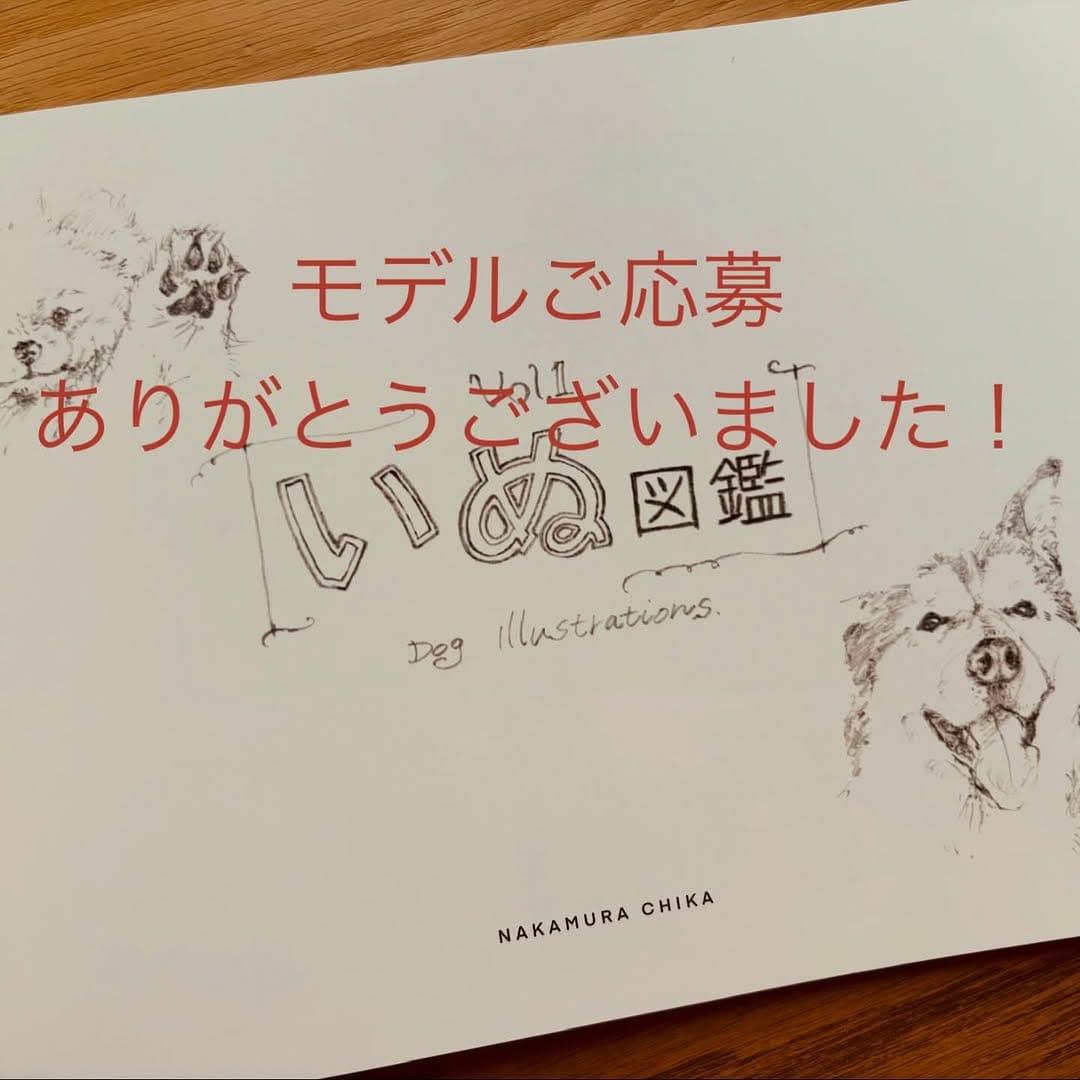 モデルご応募
Vol.1
ありがとうございました！
いぬ図鑑
Dog Illustrations.
NAKAMURA CHIKA